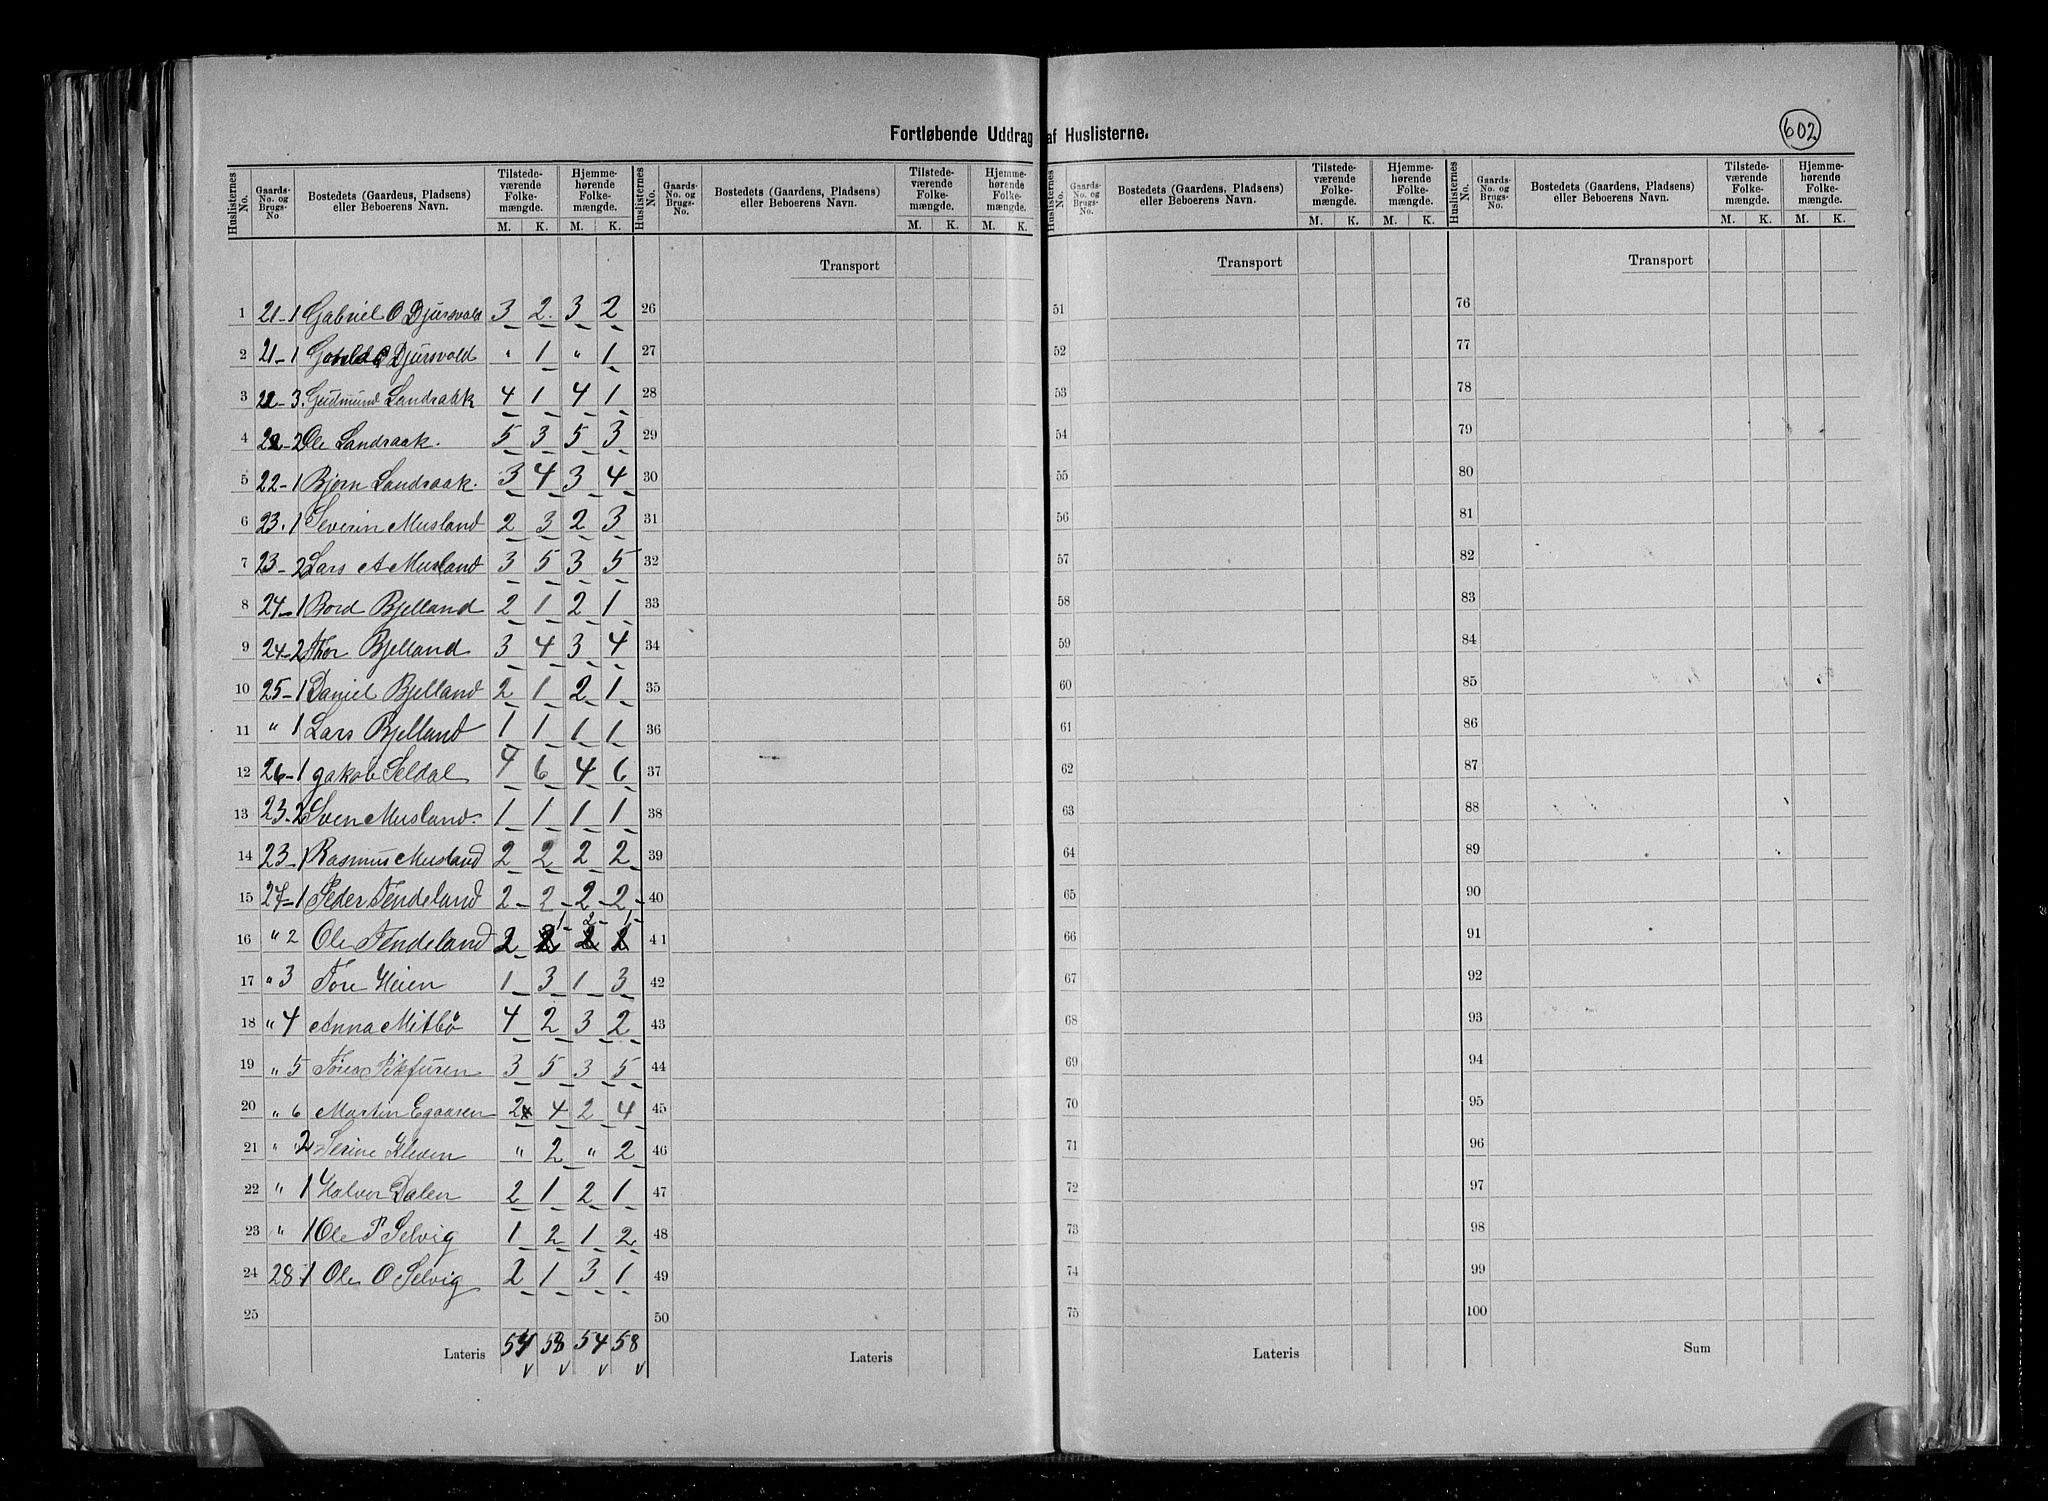 Fortløbende Uddrag af Huslisterne.
602
Huslisternes No. Gaards-No. og Brugs-No. Bostedets (Gaardens, Pladsens) eller Beboerens Navn. Tilstedeværende Folkemængde. M. K. Hjemmehørende Folkemængde. M. K.
Huslisternes No. Gaards-No. og Brugs-No. Bostedets (Gaardens, Pladsens) eller Beboerens Navn. Tilstedeværende Folkemængde. M. K. Hjemmehørende Folkemængde. M. K.
Huslisternes No. Gaards-No. og Brugs-No. Bostedets (Gaardens, Pladsens) eller Beboerens Navn. Tilstedeværende Folkemængde. M. K. Hjemmehørende Folkemængde. M. K.
Huslisternes No. Gaards-No. og Brugs-No. Bostedets (Gaardens, Pladsens) eller Beboerens Navn. Tilstedeværende Folkemængde. M. K. Hjemmehørende Folkemængde. M. K.
Transport Transport Transport
1 21-1 Gabriel O Djursvold 3 2 3 2 26 51 76
2 21-1 O Djursvold " 1 " 1 27 52 77
3 22-3. Gudmund Landsaak 4 1 4 1 28 53 78
4 22-2 Ole Landraak. 5 3 5 3 29 54 79
5 22-1 Bjørn Landraak. 3 4 3 4 30 55 80
6 23.1 Severin Musland 2 3 2 3 31 56 81
7 23-2 Lars A Musland 3 5 3 5 32 57 82
8 24-1 Bord Bjelland 2 1 2 1 33 58 83
9 24-2 Thor Bjelland 3 4 3 4 34 59 84
10 25-1 Daniel Bjelland 2 1 2 1 35 60 85
11 " 1 Lars Bjelland 1 1 1 1 36 61 86
12 26-1 Jakob Seldal 4 6 4 6 37 62 87
13 23-2 Sven Musland. 1 1 1 1 38 63 88
14 23-1 Rasmus Musland 2 2 2 2 39 64 89
15 27-1 Peder Tendeland 2 2 2 2 40 65 90
16 " 2 Ole Tendeland 2 1 2 1 41 66 91
17 " 3 Tore Heien 1 3 1 3 42 67 92
18 " 4 Anna Mitbö 4 2 3 2 43 68 93
19 " 5 3 5 3 5 44 69 94
20 " 6 Martin Egaasen 2 4 2 4 45 70 95
21 " 2 Serine Kleven " 2 " 2 46 71 96
22 " 1 Halvor Dalen 2 1 2 1 47 72 97
23 " 1 Ole P Selvig 1 2 1 2 48 73 98
24 28-1 Ole O Selvig 2 1 3 1 49 74 99
25 50 75 100
Lateris 54 58 54 58 Lateris Lateris Sum